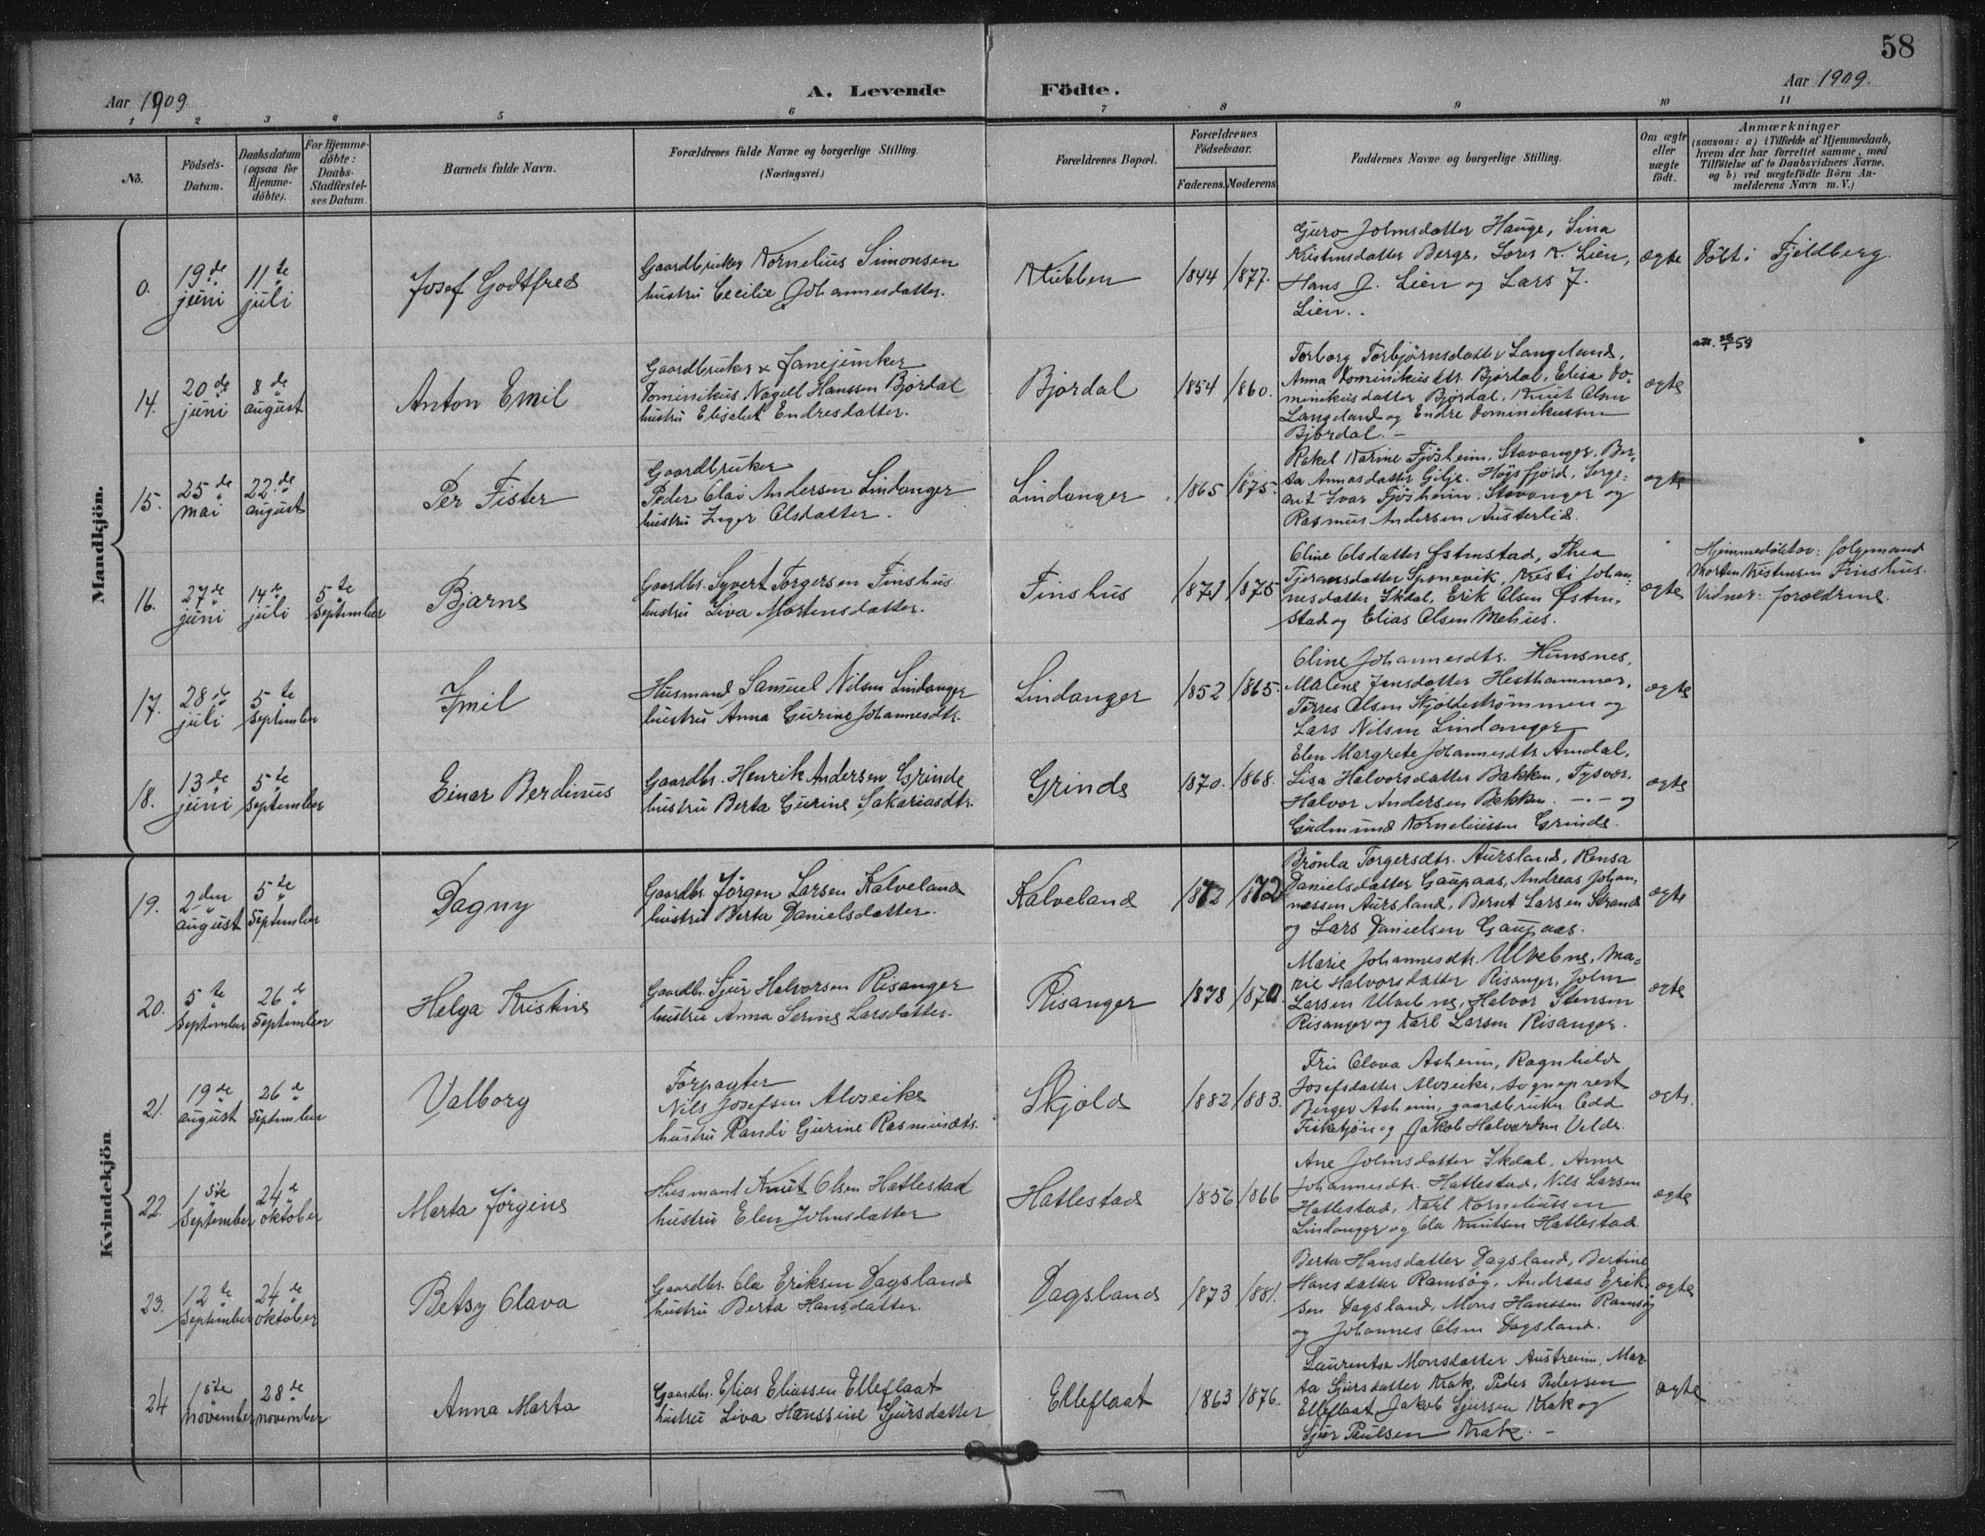 58
Aar 1909.
A. Levende Födte.
Aar 1909.
1 2 3 4 5 6 7 8 9 10 11
No.
Födsels-
Datum.
Daabsdatum
(ogsaa for
Hjemme-
döbte).
For Hjemme-
döbte:
Daabs-
Stadfæstel-
ses Datum.
Barnets fulde Navn.
Forældrenes fulde Navne og borgerlige Stilling.
(Næringsvei.)
Forældrenes Bopæl.
Forældrenes
Födselsaar.
Faderens. Moderens
Faddernes Navne og borgerlig Stilling.
Om ægte
eller
uægte
födt.
Anmærkninger
(saasom: a) i Tilfælde af Hjemmedaab,
hvem der har forrettet samme, med
Tilföielse af to Daabsvidners Navne,
og b) ved uægtefödte Börn An-
melderens Navn m. V.)
Mandkjön.
0.
19de
juni
11te
juli
Josef Godtfred
Gaardbruker Kornelius Simonsen
hustru Cecilie Johannesdatter.
Klubben
1844 1877.
Guro Johnsdatter Hauge, Sina
Kristensdatter Berge, Lars K. Lien,
Hans J. Lien og Lars J.
Lien.
ægte
Döbt i Fjeldberg.
14.
20de
juni
8de
august
Anton Emil
Gaardbruker & Fanejunker
Dominikus Nagell Hanssen Bjordal
hustru Elisabet Endresdatter.
Bjordal
1854 1860.
Torborg Torbjørnsdatter Langeland,
Anna Dominikusdtr. Bjordal, Elisa Do-
minikusdatter Bjordal, Knut Olsen
Langeland og Endre Dominikussen
Bjordal.
ægte
15.
25de
mai
22de
august
Per Fister
Gaardbruker
Peder Olai Andersen Lindanger
hustru Inger Olsdatter.
Lindanger
1865 1875.
Rakel Karine Fjøsheim, Stavanger, Ber-
ta Annasdatter Gilje, Høgsfjord, Serge-
ant Ivar Fjøsheim, Stavanger og
Rasmus Andersen Austerlid.
ægte
16.
27de
juni
14de
juli
5te
September
Bjarne
Gaardbr. Syvert Torgersen Finshus
hustru Liva Mortensdatter.
Finshus
1871 1875
Oline Olsdatter Østenstad, Thea
Tjeransdatter Sponevik, Kristi Johan-
nesdatter Skdal, Erik Olsen Østen-
stad og Elias Olsen Mehus.
ægte
Hjemmedøbtav: folgemand
Morten Kristensen Finshus.
Vidner: foreldrene.
17.
28de
juli
5te
September
Emil
Husmand Samuel Nilsen Lindanger
hustru Anna Gurine Johannesdtr.
Lindanger
1852 1865.
Oline Johannesdtr. Hemsnes,
Malene Jensdatter Hesthammer,
Tørres Olsen Skjoldestrømmen og
Lars Nilsen Lindanger
ægte
18.
13de
juni
5te
September
Einar Berdinus
Gaardbr. Henrik Andersen Grinde
hustru Berta Gurine Sakariasdtr.
Grinde
1870. 1868.
Elen Margrete Johannesdtr. Amdal,
Lisa Halvorsdatter Bakken, Tysvær.
Halvor Andersen Bakken. — og
Gudmund Korneliussen Grinde.
ægte
Kvindekjön
19.
2den
august
5te
September
Dagny
Gaardbr. Jørgen Larsen Kalveland
hustru Berta Danielsdatter.
Kalveland
1872 1872
Brønla Torgersdtr. Aursland, Rensa
Danielsdatter Gaupaas, Andreas Johan-
nessen Aursland, Bernt Larsen Strand
og Lars Danielsen Gaupaas.
ægte
20.
5te
September
26de
September
Helga Kristine
Gaardbr. Sjur Halvorsen Risanger
hustru Anna Serine Larsdatter.
Risanger
1878 1870.
Marie Johannesdtr. Ulvebne, Ma-
rie Halvorsdatter Risanger, John
Larsen Ulvebne, Halvor Stensen
Risanger og Karl Larsen Risanger.
ægte
21.
19de
august
26de
September
Valborg
Forpagter
Nils Josefsen Alvseike
hustru Randi Gurine Rasmusdtr.
Skjold
1882 1883.
Fru Olava Asheim, Ragnhild
Josefsdatter Alvseike, sogneprest
Birger Asheim, gaardbruker Odd
Fisketjøn og Jakob Halvardsen Velde.
ægte.
22.
1ste
September
24de
oktober
Marta Jørgine
Husmand Knut Olsen Hatlestad
hustru Elen Johnsdatter
Hatlestad
1856 1866
Ane Johnsdatter Skdal, Anne
Johannesdtr. Hatlestad, Nils Larsen
Hatlestad, Karl Korneliussen
Lindanger og Ola Knutsen Hatlestad
ægte
23.
12te
September
24de
oktober
Betsy Olava
Gaardbr. Ola Eriksen Dagsland
hustru Berta Hansdatter.
Dagsland
1873 1881.
Berta Hansdatter Dagsland, Bertine
Hansdatter Ramsøg, Andreas Erik-
sen Dagsland, Mons Hanssen Ramsøg
og Johannes Olsen Dagsland.
ægte
24
1ste
november
28de
november
Anna Marta
Gaardbr. Elias Eliassen Elleflaat
hustru Liva Hanssine Sjursdatter
Elleflaat
1863 1876.
Laurentse Monsdatter Austreim, Mar-
ta Sjursdatter Krak, Peder Pedersen
Elleflaat, Jakob Sjursen Krak og
Sjur Paulsen Krak.
ægte